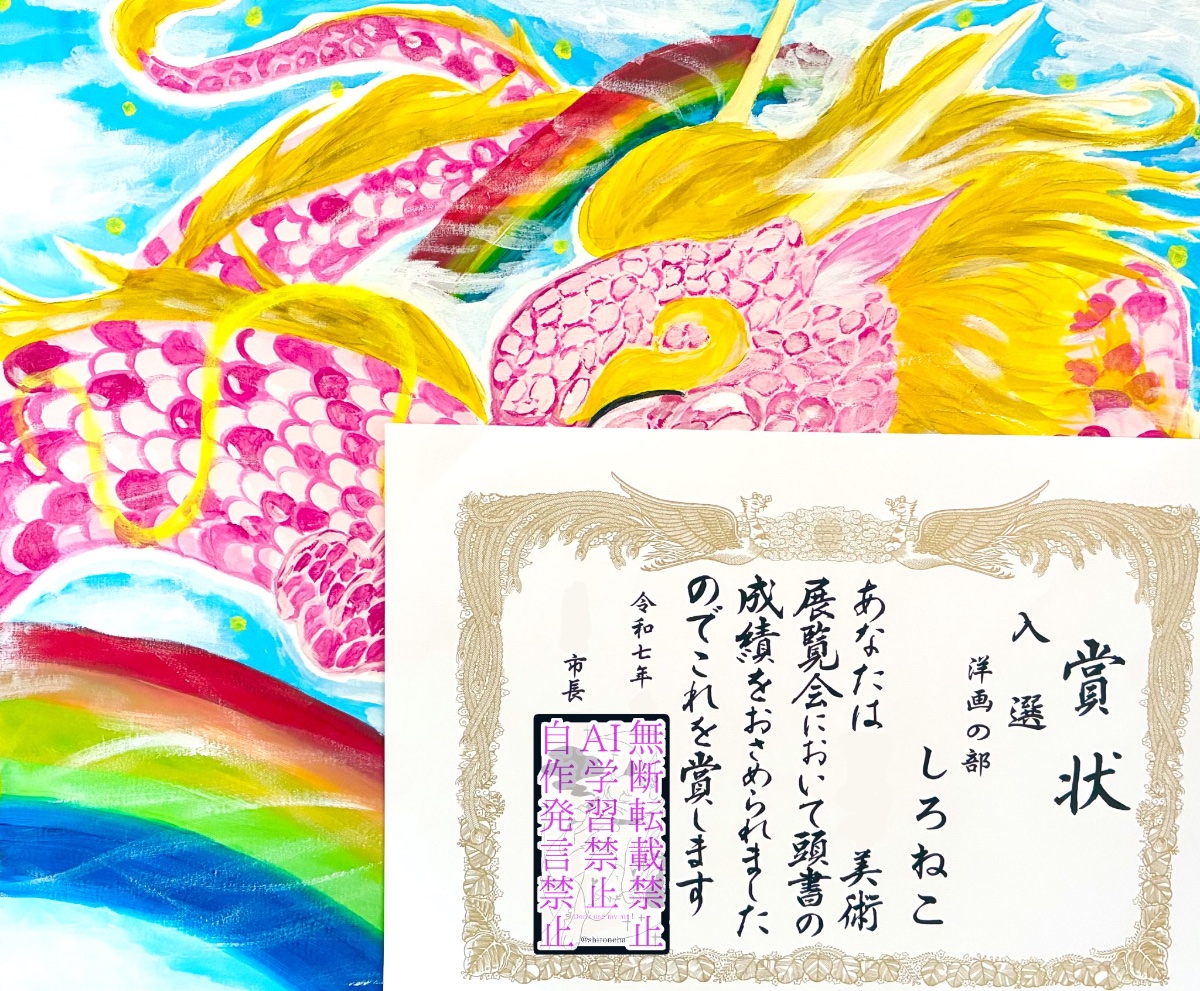 賞状
入選
洋画の部
しろねこ
あなたは 美術
展覧会において頭書の
成績をおさめられました
のでこれを賞します
令和七年
市長
無断転載禁止
AI学習禁止
自作発言禁止
Don't use my art!